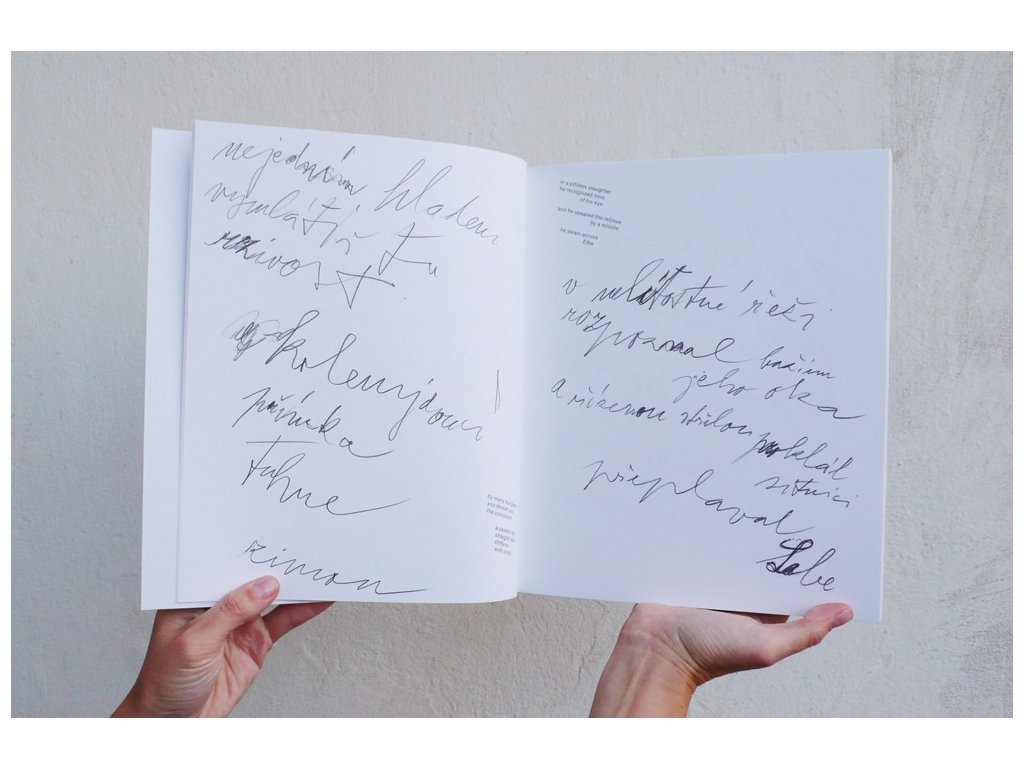 nejedním hladem
vymlátíš tu
rzivost
kolemjdoucí
přímka
tuhne
zimou
by many hunger
you thresh out
the corrosion
a passer-by
straight line
stiffens
with cold
in a pitiless slaughter
he recognized mire
of his eye
and he speared the retinue
by a missile
he swam across
Elbe
v nelítostné řeži
rozpoznal bažinu
jeho oka
a řízenou střelou proklál
sítnici
přeplaval
Labe